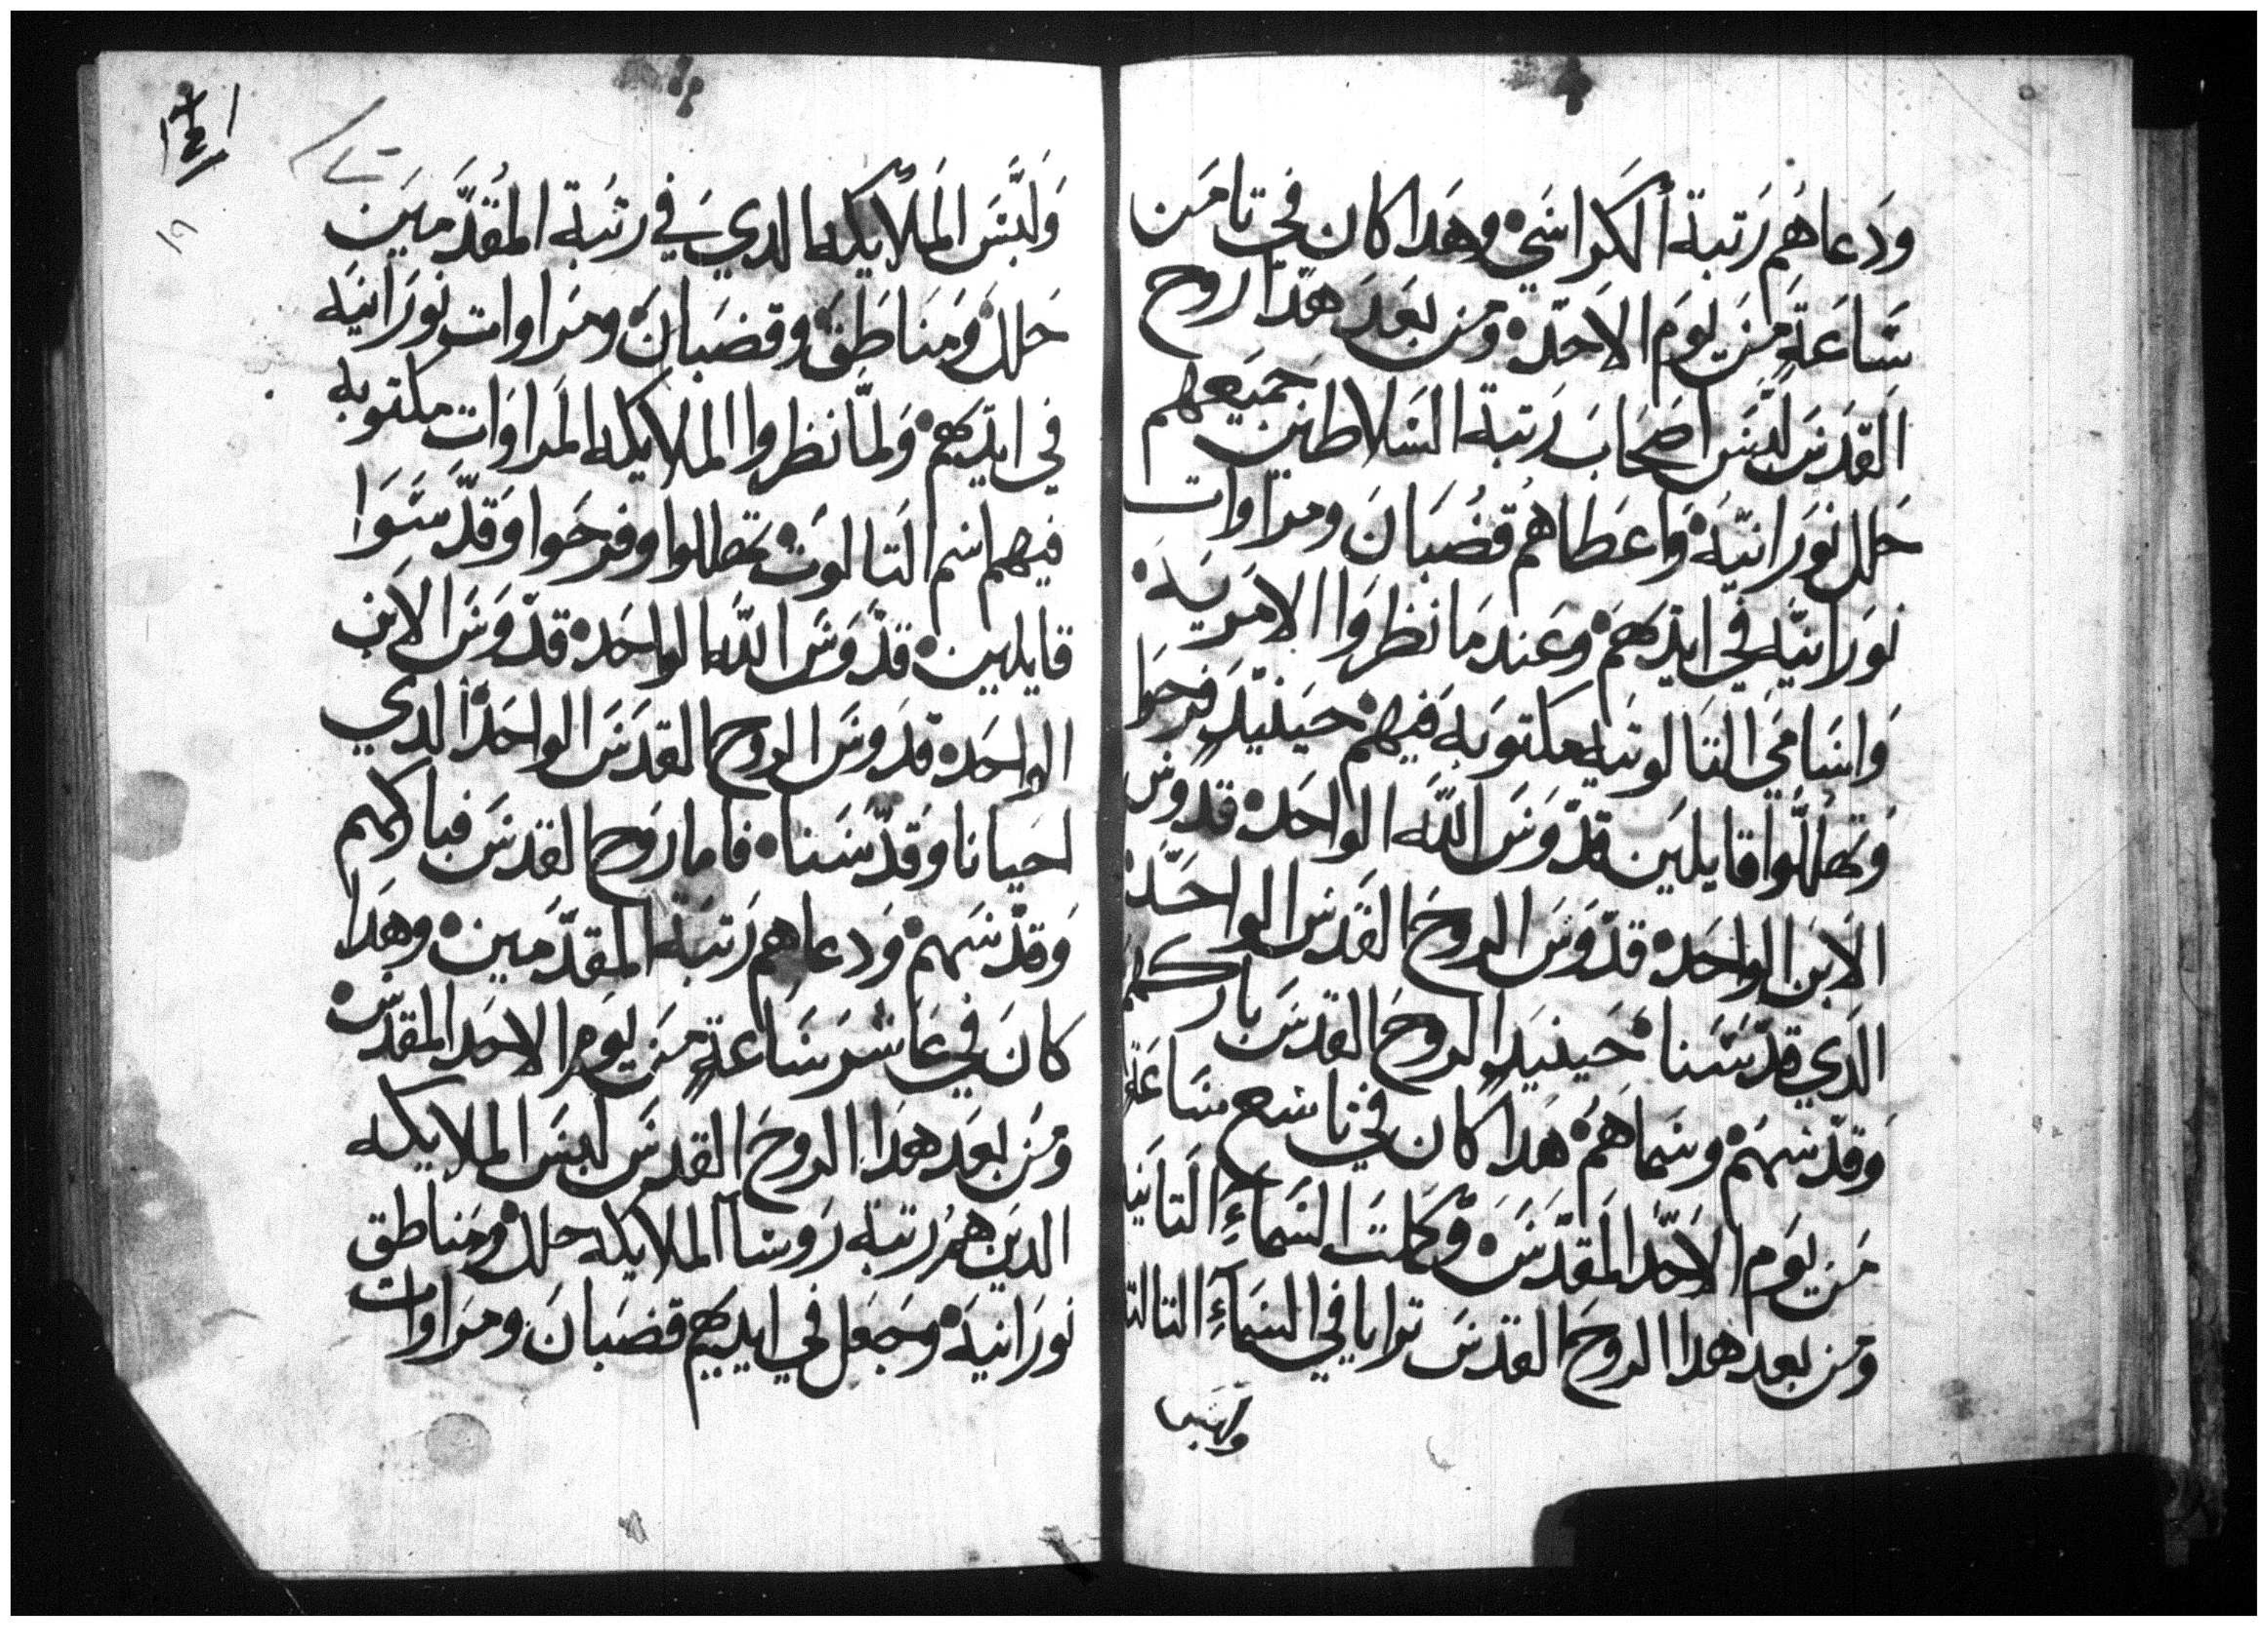 ودعاهم رتبة الكراسي وهدا كان في تامن
ساعة من يوم الاحد ومن بعد هدا روح
القدس لبس اصحاب رتبة السلاطين جميعهم
حلل نورانيه واعطاهم قضبان ومراوات
نورانيه في ايديهم وعند ما نظروا الامريه
واسامي التالوتيه مكتوبه فيهم حينيد فرحوا
وتهللوا قايلين قدوس الله الواحد قدوس
الابن الواحد قدوس الروح القدس الواحد
الدي قدسنا حينيد الروح القدس باركهم
وقدسهم وسماهم هدا كان في تاسع ساعة
من يوم الاحد المقدس وكملت السماء التانيا
ومن بعد هدا الروح القدس ترايا في السماء التالتا
ولبس
ولبس الملايكه الدي في رتبة المقدمين
حلل ومناطق وقضبان ومراوات نورانيه
في ايديهم ولما نظروا الملايكه المراوات مكتوبه
فيهم اسم التالوت تهللوا وفرحوا وقدسوا
قايلين قدوس الله الواحد قدوس الابن
الواحد قدوس الروح القدس الواحد الدي
احيانا وقدسنا فاما روح القدس فباركهم
وقدسهم ودعاهم رتبة المقدمين وهدا
كان في عاشر ساعة من يوم الاحد المقدس
ومن بعد هدا الروح القدس لبس الملايكه
الدين هم رتبة روسا الملايكه حلل ومناطق
نورانيه وجعل في ايديهم قضبان ومراوات